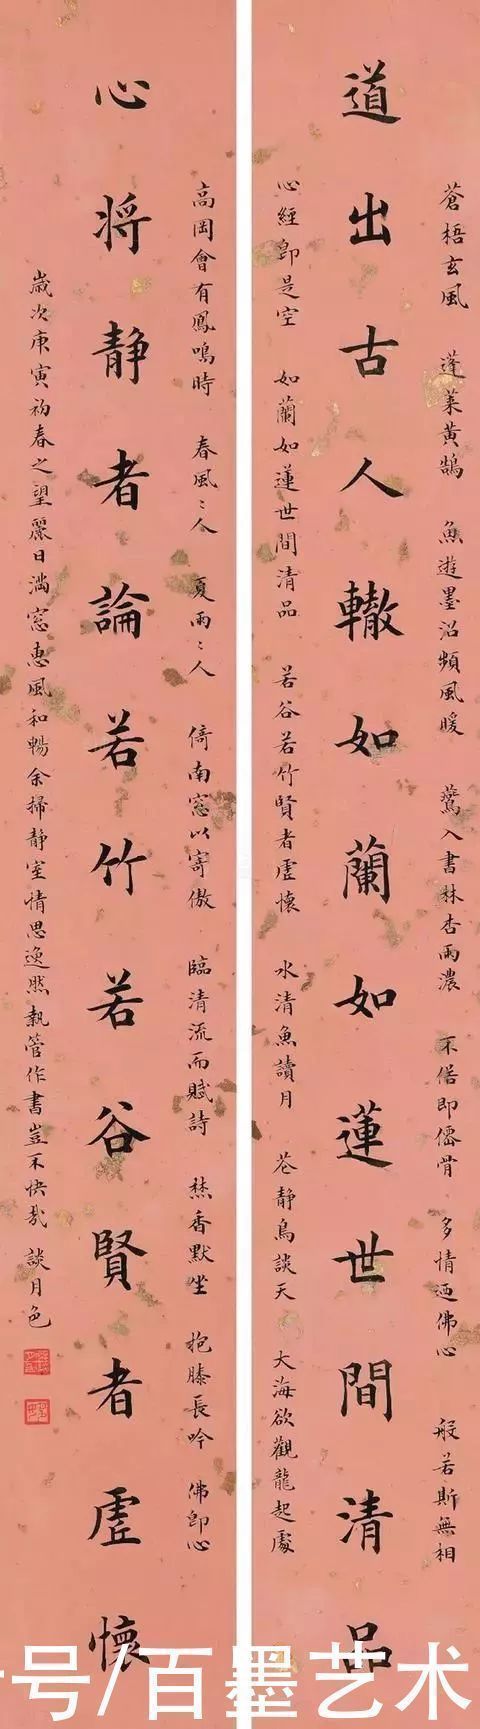 蒼梧玄風 蓬萊黃鵠 魚遊墨沼頻風暖 鶯入書林杏雨濃 不俗即僊骨 多情迺佛心 般若斯無相
道出古人轍如蘭如蓮世間清品
心經即是空 如蘭如蓮世間清品 若谷若竹賢者虛懷 水清魚讀月 花静鳥談天 大海欲觀龍起處
高岡會有鳳鳴時 春風〻人 夏雨〻人 倚南窓以寄傲 臨清流而賦詩 焚香默坐 抱膝長吟 佛即心
心将靜者論若竹若谷賢者虛懷
歲次庚寅初春之望麗日滿窓惠風和暢余掃靜室情思逸然執管作書豈不快哉 談月色
号/百墨艺术